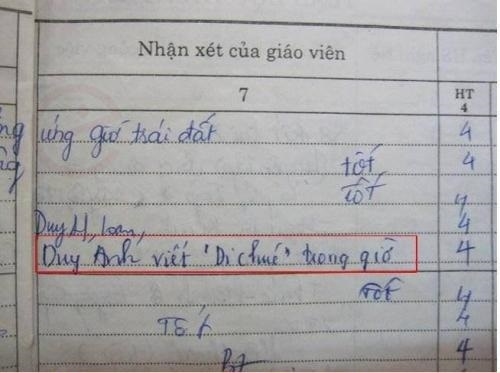 Nhận xét của giáo viên
7 HT 4
ứng Giờ trái đất 4
tốt 4
tốt 4
Duy H, loan, 4
Duy Anh viết "Di chúc" trong giờ 4
Tốt 4
Tốt 4
4